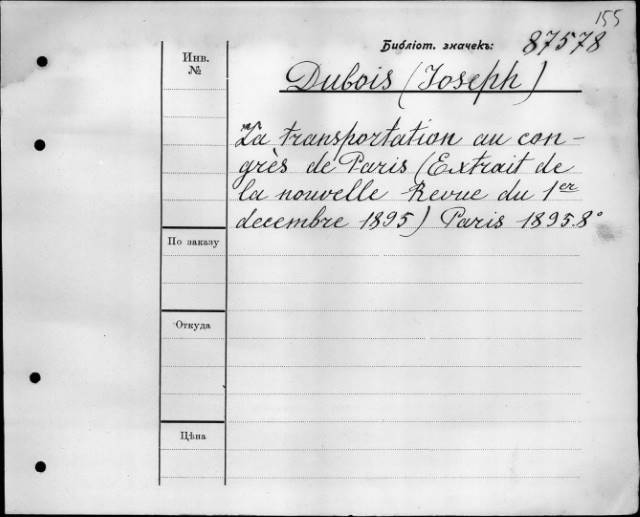 155
Библіот. значекъ: 87578
Инв.
№
Dubois (Joseph)
La transportation au con-
grès de Paris (Extrait de
la nouvelle Revue du 1er
decembre 1895) Paris 1895.8°
По заказу
Откуда
Цѣна